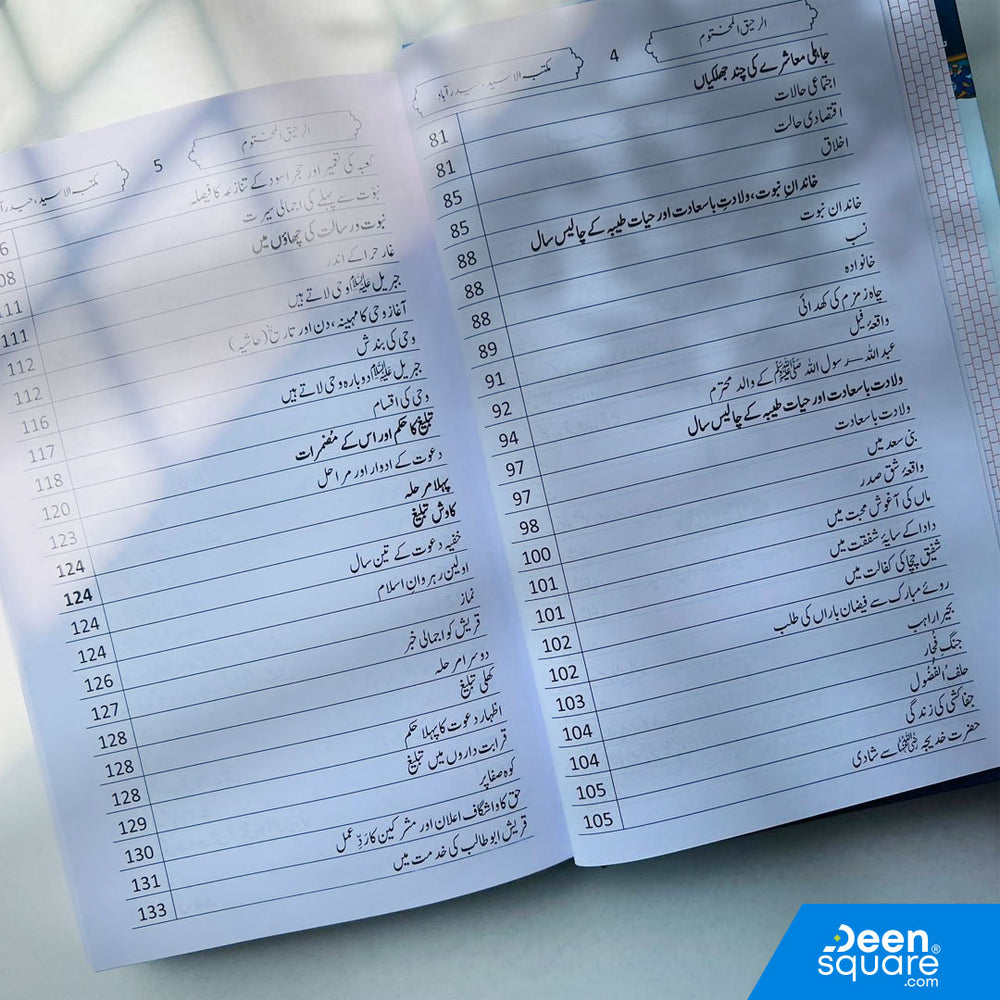 الرحیق المختوم 4 مکتبہ الاسید، حیدرآباد
جاہلی معاشرے کی چند جھلکیاں 81
اجتماعی حالات 81
اقتصادی حالت 85
اخلاق 85
خاندانِ نبوت، ولادتِ باسعادت اور حیات طیبہ کے چالیس سال 88
خاندان نبوت 88
نسب 88
خانوادہ 89
چاہ زمزم کی کھدائی 91
واقعۂ فیل 92
عبد اللہ—رسول اللہ ﷺ کے والد محترم 94
ولادت باسعادت اور حیات طیبہ کے چالیس سال 97
ولادت باسعادت 97
بنی سعد میں 98
واقعۂ شق صدر 100
ماں کی آغوش محبت میں 101
دادا کے سایۂ شفقت میں 101
شفیق چچا کی کفالت میں 102
روئے مبارک سے فیضان باراں کی طلب 102
بحیرا راہب 103
جنگ فُجار 104
حلفُ الفُضُول 104
جفا کشی کی زندگی 105
حضرت خدیجہ رضی اللہ عنہا سے شادی 105
الرحیق المختوم 5 مکتبہ الاسید، حیدرآباد
کعبہ کی تعمیر اور حجر اسود کے تنازعہ کا فیصلہ 6
نبوت سے پہلے کی اجمالی سیرت 08
نبوت و رسالت کی چھاؤں میں 111
غار حرا کے اندر 111
جبریل علیہ السلام وحی لاتے ہیں 112
آغاز وحی کا مہینہ، دن اور تاریخ (حاشیہ) 112
وحی کی بندش 116
جبریل علیہ السلام دوبارہ وحی لاتے ہیں 117
وحی کی اقسام 118
تبلیغ کا حکم اور اس کے مُضمرات 120
دعوت کے ادوار اور مراحل 123
پہلا مرحلہ 124
کاوش تبلیغ 124
خفیہ دعوت کے تین سال 124
اولین رہروانِ اسلام 124
نماز 126
قریش کو اجمالی خبر 127
دوسرا مرحلہ 128
کھلی تبلیغ 128
اظہار دعوت کا پہلا حکم 128
قرابت داروں میں تبلیغ 129
کوہ صفا پر 130
حق کا واشگاف اعلان اور مشرکین کا ردِّ عمل 131
قریش ابو طالب کی خدمت میں 133
Deen®
square
.com